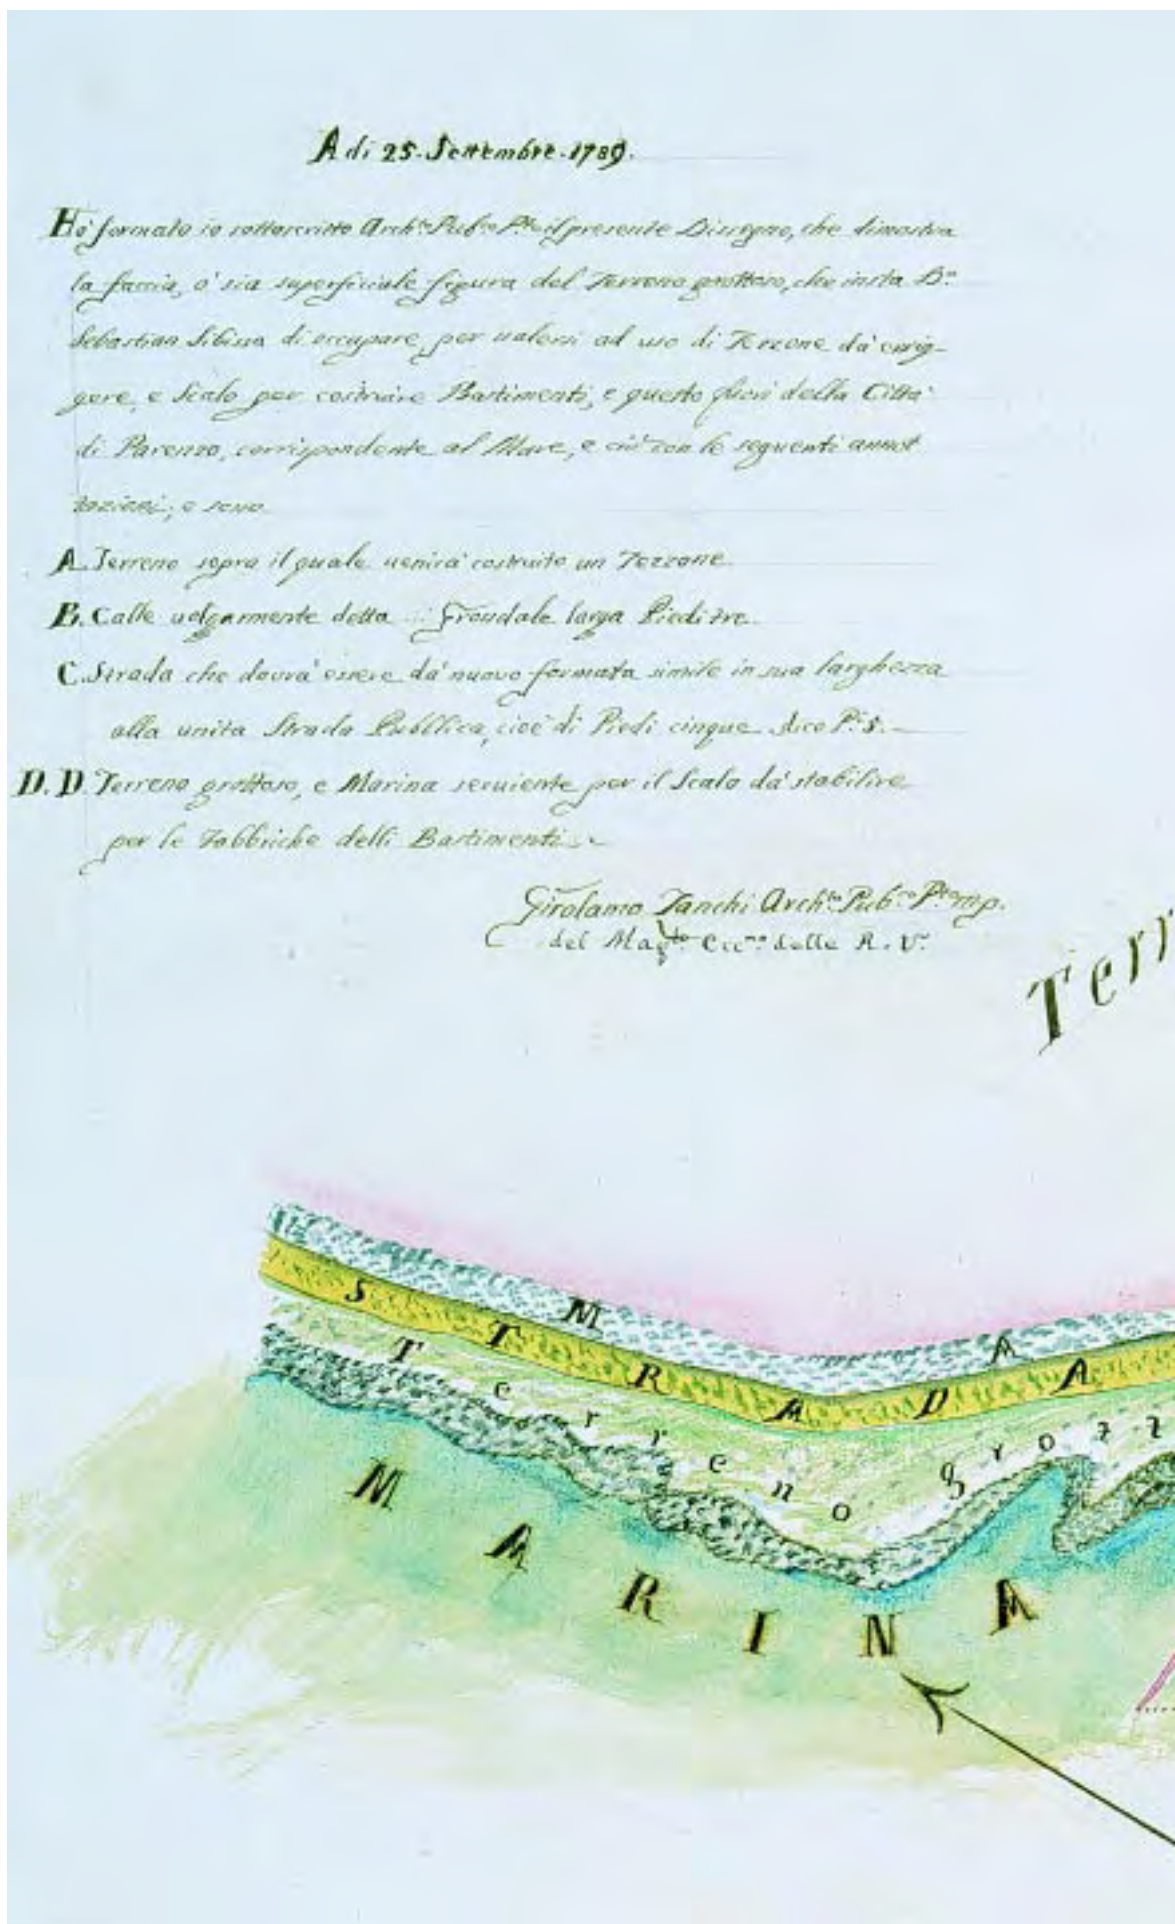 A di 25. Settembre. 1789.
Hò formato io sottoscritto Arch.to Pub.co P.to il presente Dissegno, che dimostra
la faccia, ò sia superficiale figura del Terreno grottoso, che insta D.n
Sebastian Sibissa di occupare, per valersi ad uso di Tezzone dà errig-
gere, e Scalo per costruire Bastimenti, e questo fuori della Città
di Parenzo, corrispondente al Mare, e ciò con le seguenti annot
tazioni; e sono
A. Terreno sopra il quale venirà costruito un Tezzone.
B. Calle volgarmente detta Grondale larga Piedi tre.
C. Strada che dovrà essere dà nuovo formata simile in sua larghezza
alla unita Strada Pubblica, cioè di Piedi cinque dico P: 5.
D. D Terreno grottoso, e Marina serviente per il Scalo dà stabilire
per le Fabbriche delli Bastimenti
Girolamo Zanchi Arch.to Pub.co P.to mp.
del Mag.to Ecc.mo delle R. V.
Terr
M A
STRADA
Terreno grozz
MARINA